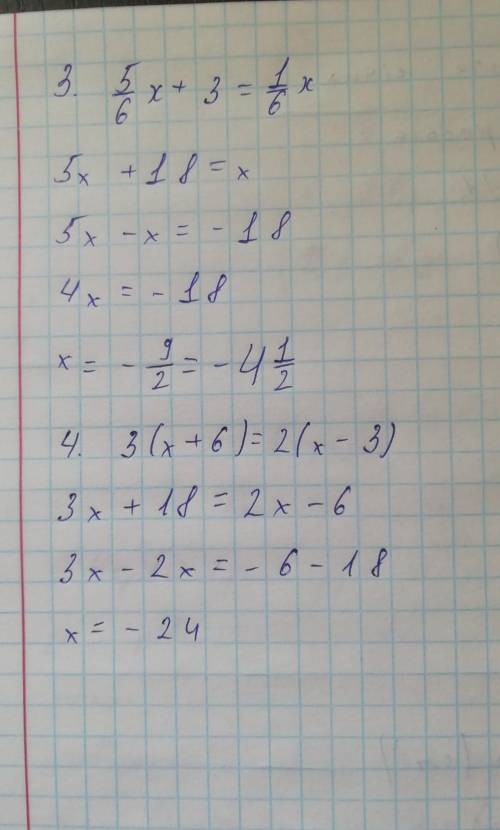 3. 5/6 x + 3 = 1/6 x
5x + 18 = x
5x - x = - 18
4x = - 18
x = - 9/2 = - 4 1/2
4. 3(x + 6) = 2(x - 3)
3x + 18 = 2x - 6
3x - 2x = - 6 - 18
x = - 24